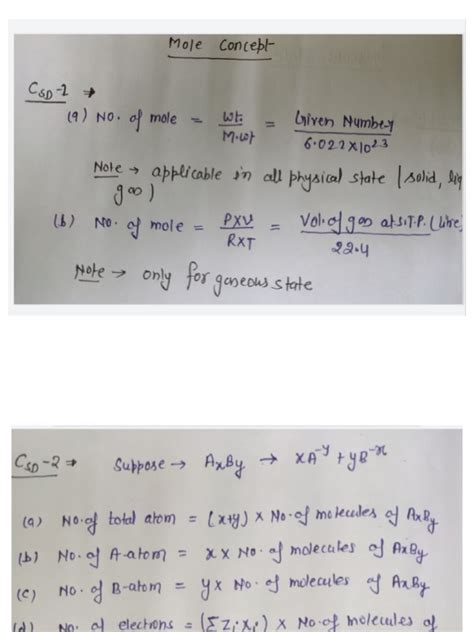 Mole Concept
CSD-1 ⇒
(a) No. of mole = Wt. / M.wt = Given Number / 6.022×10²³
Note → applicable in all physical state (solid, liq
gas)
(b) No. of mole = P×V / R×T = Vol. of gas at S.T.P. (litre) / 22.4
Note → only for gaseous state
CSD-2 ⇒ Suppose → AxBy → xA⁻ʸ + yB⁻ˣ
(a) No. of total atom = (x+y) × No. of molecules of AxBy
(b) No. of A-atom = x × No. of molecules of AxBy
(c) No. of B-atom = y × No. of molecules of AxBy
(d) No. of electrons = (ΣZixi) × No. of molecules of